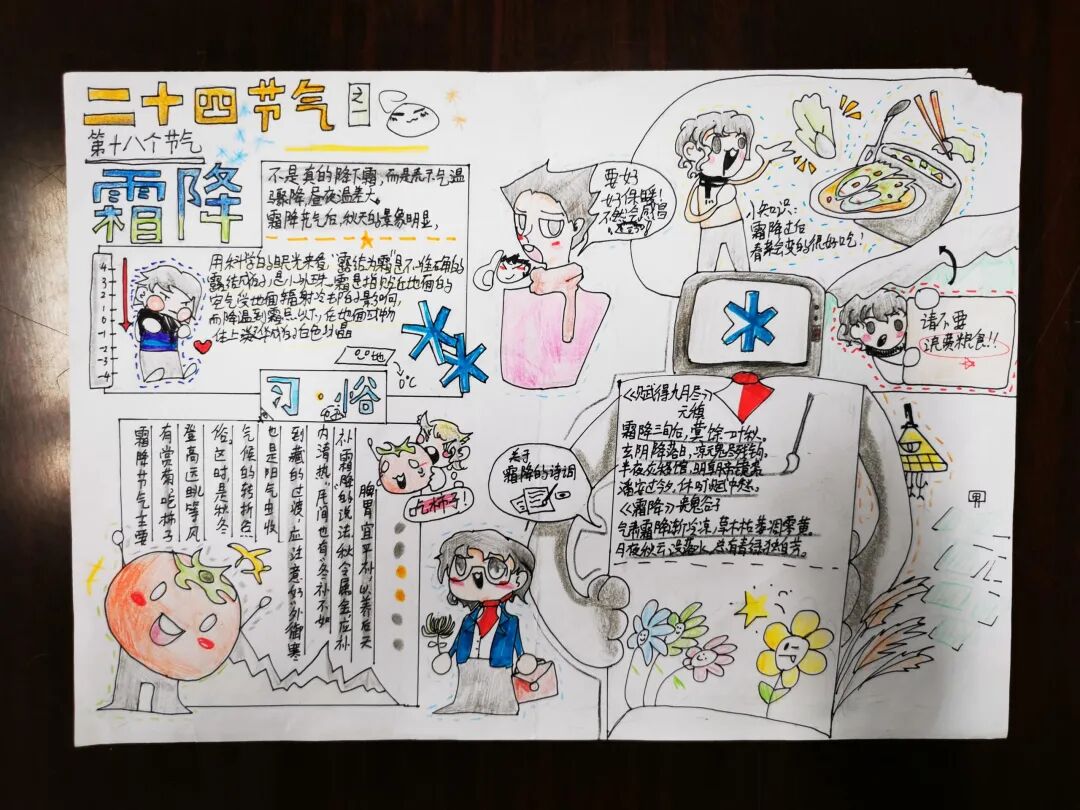 二十四节气
之一
第十八个节气
霜降
不是真的降下霜,而是表示气温
骤降,昼夜温差大。
霜降节气后,秋天的景象明显,
用科学的眼光来看,“露结为霜”是不准确的
露结成的是小冰珠。霜是指贴近地面的
空气受地面辐射冷却的影响,
而降温到霜点以下,在地面或物
体上凝华成的白色冰晶
4
3
2
1
0
-1
-2
-3
-4
地
0℃
习·俗
霜降节气主要
有赏菊、吃柿子
登高远眺等风
俗。这时,是秋冬
气候的转折点
也是阳气由收
到藏的过渡,应注意的“外御寒
内清热”。民间也有“冬补不如
补霜降”的说法,秋令属金,应补
脾胃宜平补,以养后天
吃柿子!
要好
好保暖!
不然会感冒
小知识:
霜降过后
青菜会变的很好吃!
请不要
浪费粮食!!
关于
霜降的诗词
《赋得九月尽》
元稹
霜降三旬后,蓂馀一叶秋。
玄阴迎落日,凉魄尽残钩。
半夜灰移琯,明朝帝御裘。
潘安过今夕,休咏赋中愁。
《霜降》
气肃霜降渐冷凉,草木枯萎凋零黄